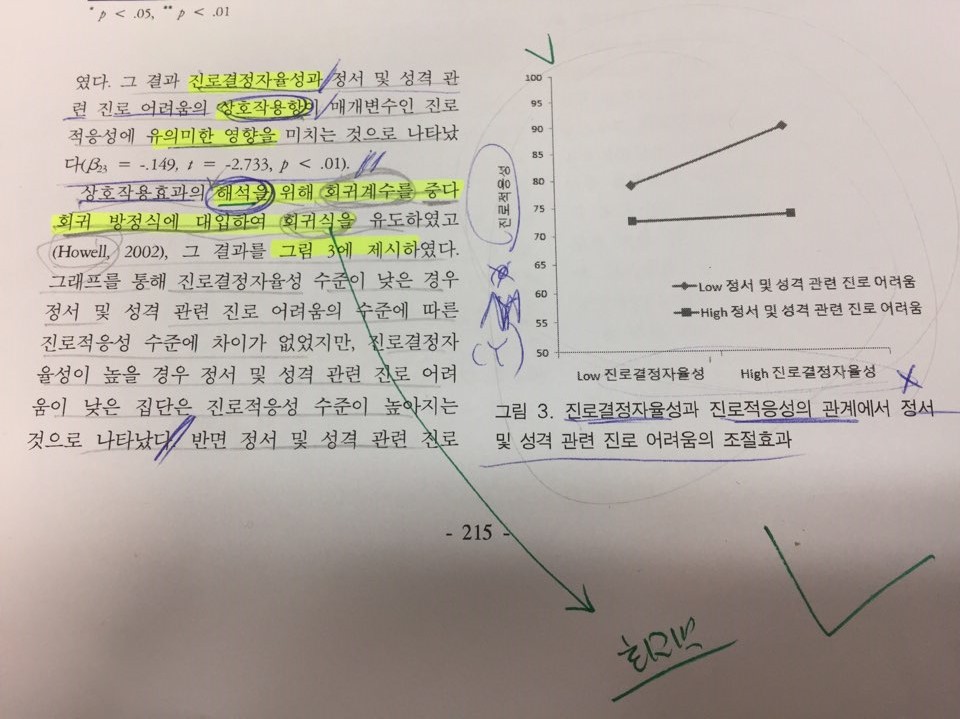 * p < .05, ** p < .01
였다. 그 결과 진로결정자율성과 정서 및 성격 관
련 진로 어려움의 상호작용항이 매개변수인 진로
적응성에 유의미한 영향을 미치는 것으로 나타났
다(β23 = -.149, t = -2.733, p < .01).
상호작용효과의 해석을 위해 회귀계수를 중다
회귀 방정식에 대입하여 회귀식을 유도하였고
(Howell, 2002), 그 결과를 그림 3에 제시하였다.
그래프를 통해 진로결정자율성 수준이 낮은 경우
정서 및 성격 관련 진로 어려움의 수준에 따른
진로적응성 수준에 차이가 없었지만, 진로결정자
율성이 높을 경우 정서 및 성격 관련 진로 어려
움이 낮은 집단은 진로적응성 수준이 높아지는
것으로 나타났다. 반면 정서 및 성격 관련 진로
100
95
90
85
80
75
70
65
60
55
50
진로적응성
(Y)
Low 정서 및 성격 관련 진로 어려움
High 정서 및 성격 관련 진로 어려움
Low 진로결정자율성 High 진로결정자율성
X
그림 3. 진로결정자율성과 진로적응성의 관계에서 정서
및 성격 관련 진로 어려움의 조절효과
- 215 -